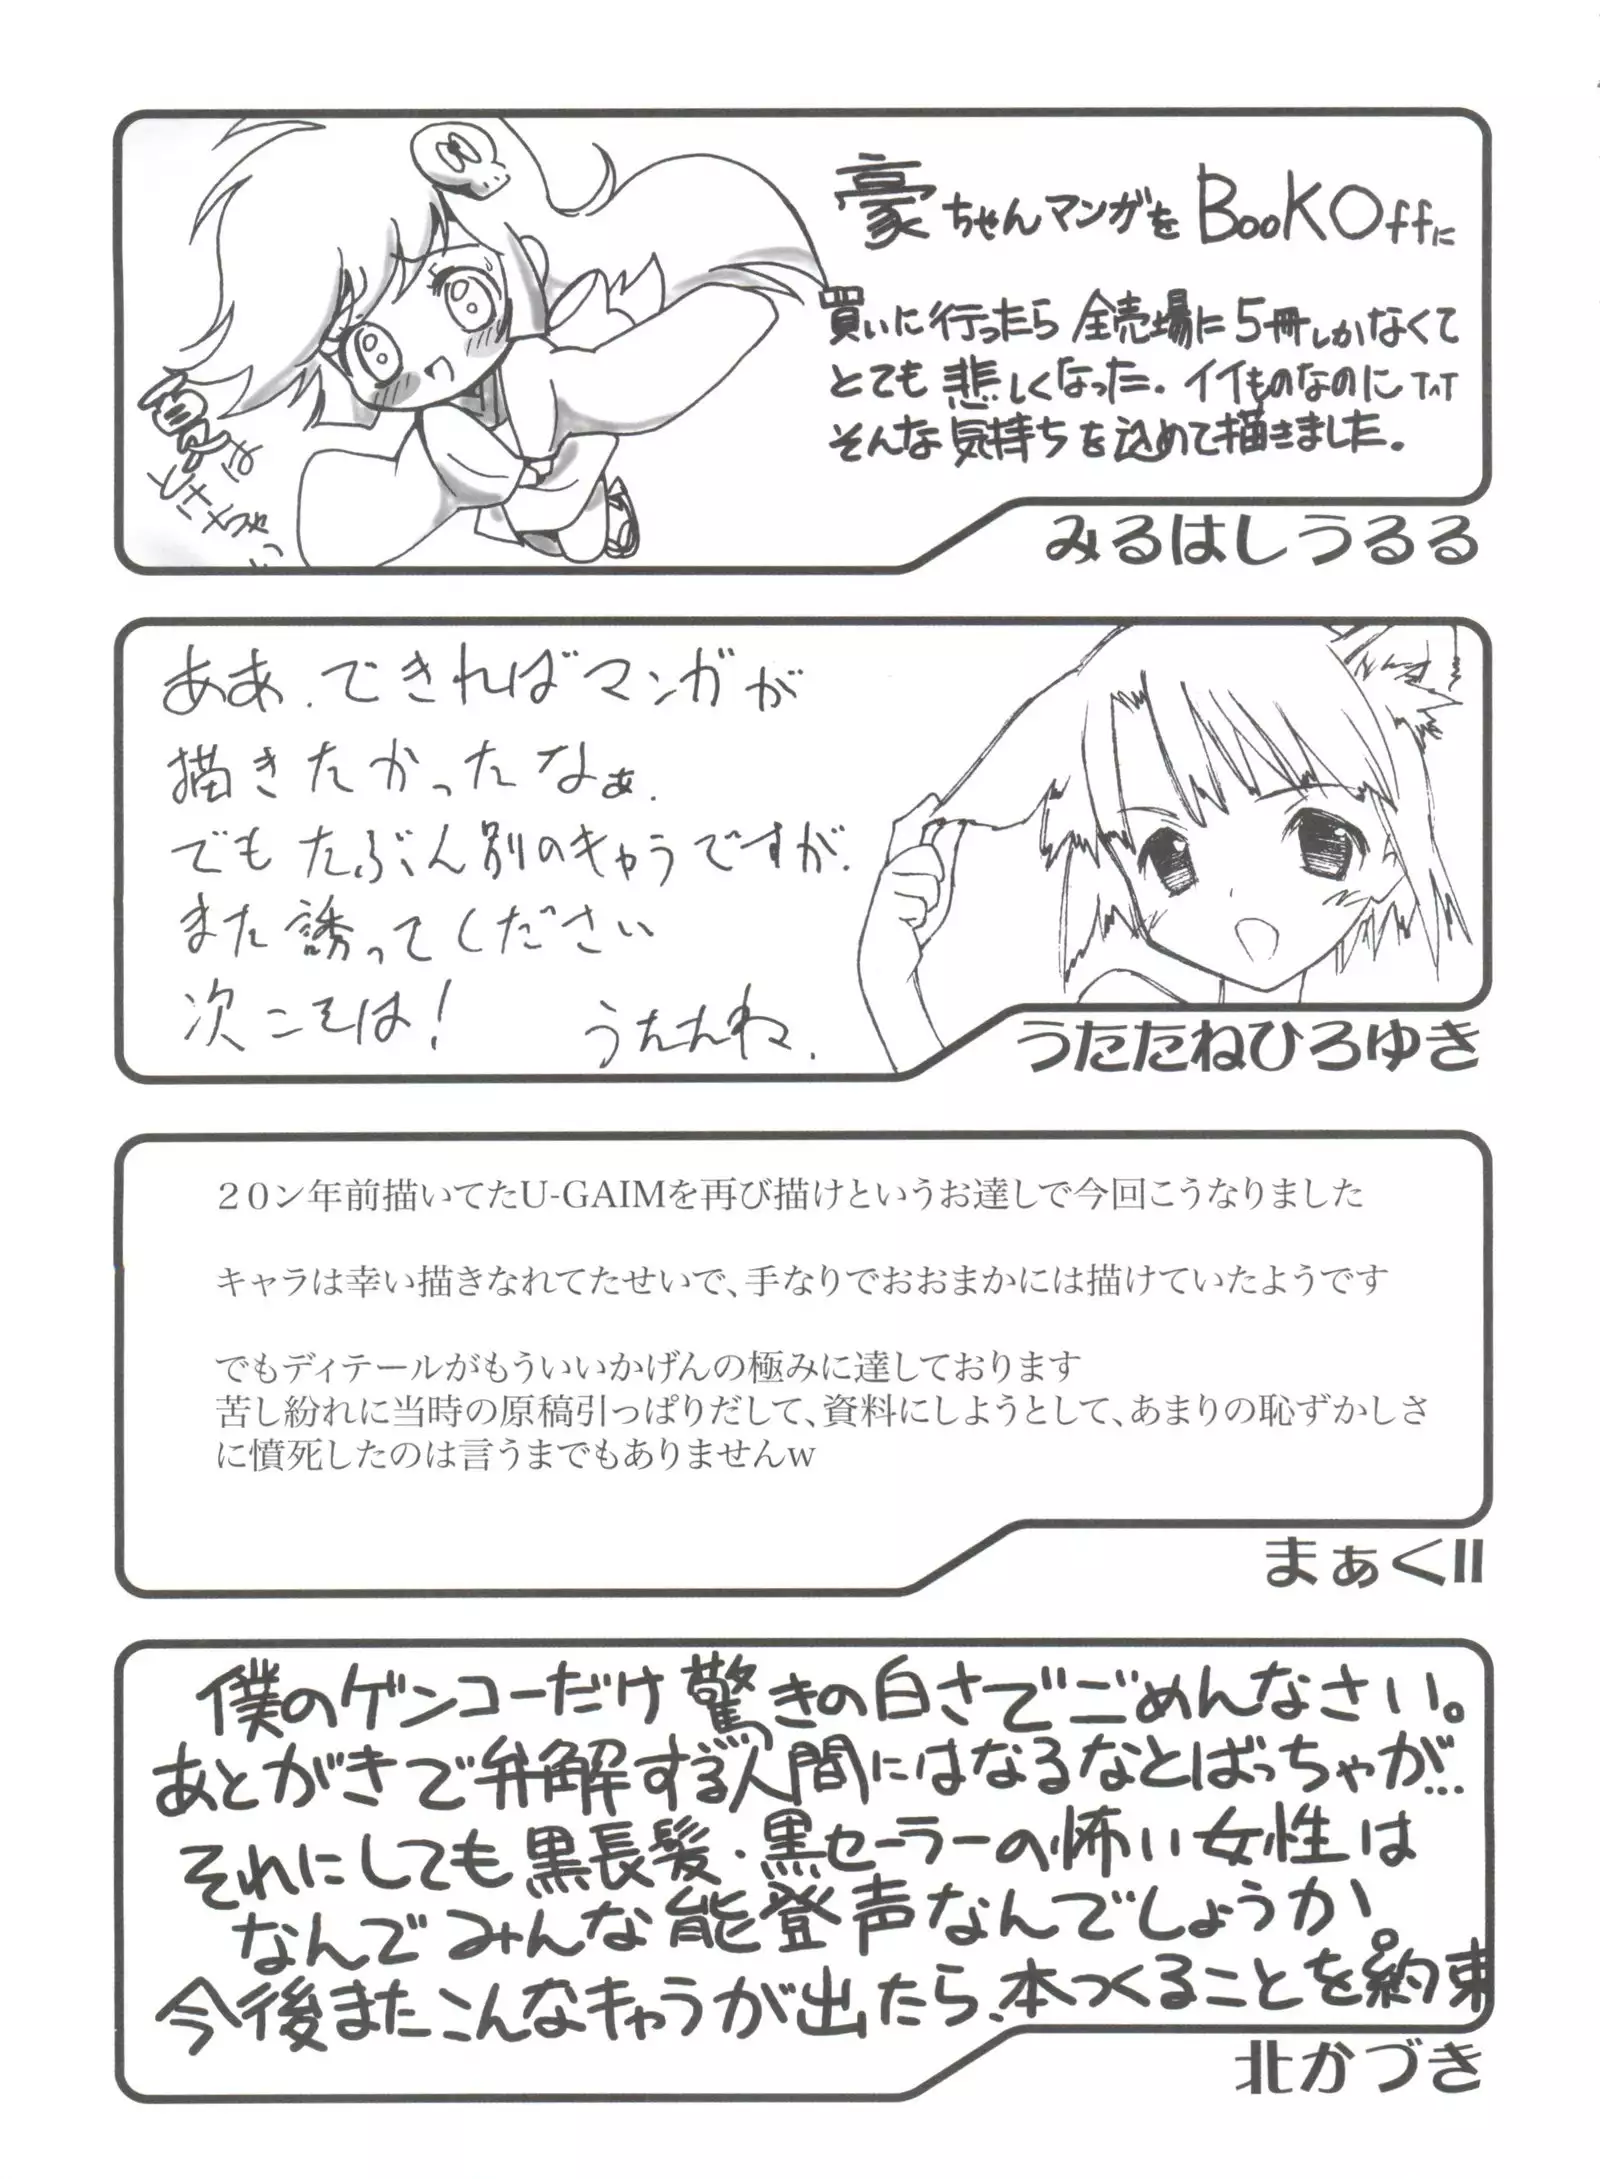 豪ちゃんマンガを BooKOffに
買いに行ったら 全売場に5冊しかなくて
とても 悲しくなった. イイものなのに TnT
そんな気持ちを込めて描きました。
みるはしうるる
ああ.できればマンガが
描きたかったなぁ.
でもたぶん別のキャラですが.
また誘ってください
次こそは!
うたたね.
うたたねひろゆき
20ン年前描いてたU-GAIMを再び描けというお達しで今回こうなりました
キャラは幸い描きなれてたせいで、手なりでおおまかには描けていたようです
でもディテールがもういいかげんの極みに達しております
苦し紛れに当時の原稿引っぱりだして、資料にしようとして、あまりの恥ずかしさ
に憤死したのは言うまでもありませんw
まぁくII
僕のゲンコーだけ驚きの白さでごめんなさい。
あとがきで弁解する人間にはなるなとばっちゃが...
それにしても黒長髪・黒セーラーの怖い女性は
なんでみんな能登声なんでしょうか。
今後またこんなキャラが出たら、本つくることを約束
北かづき